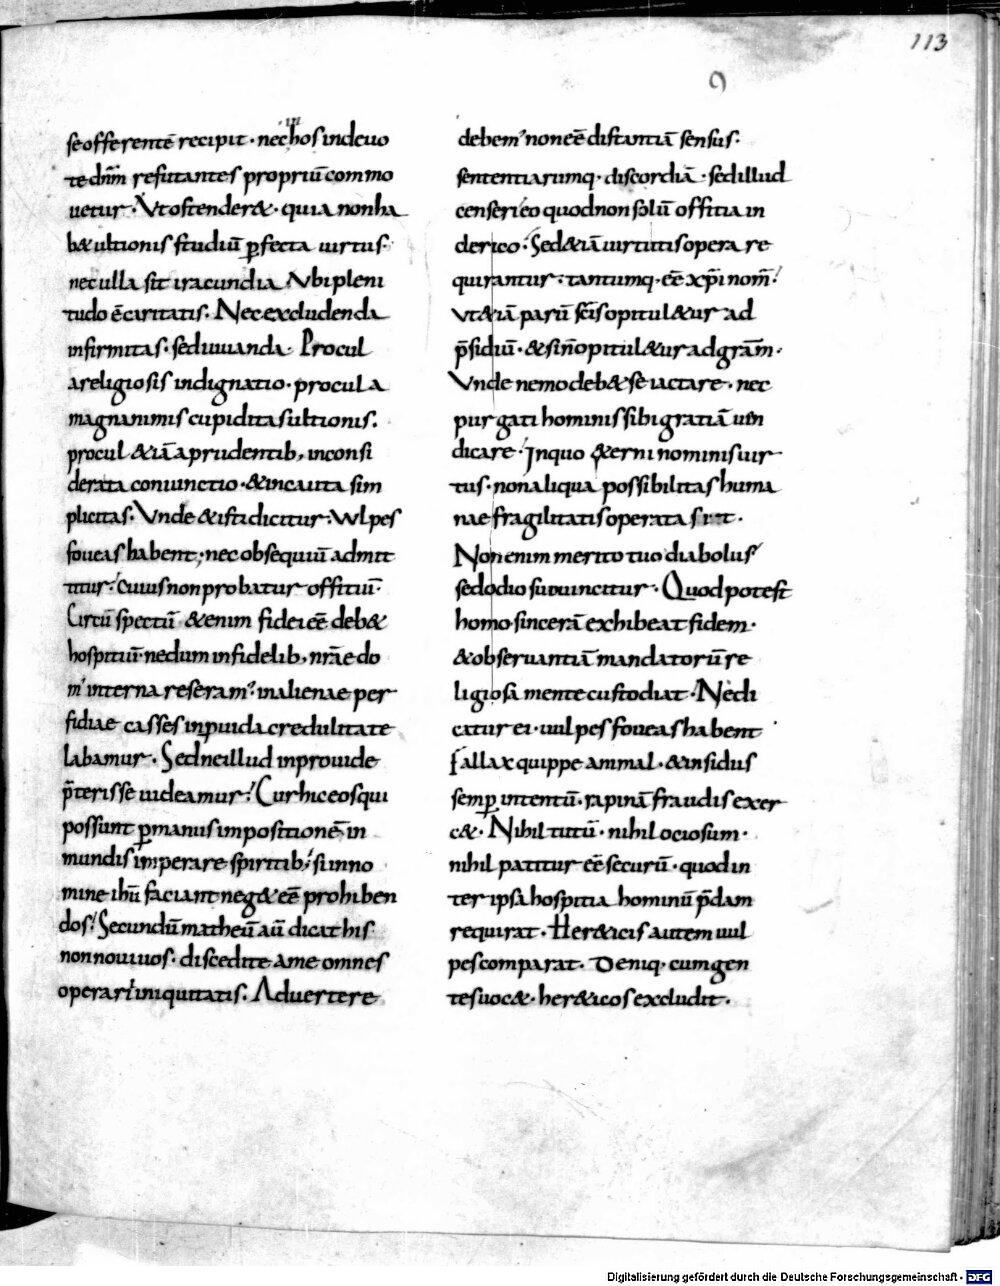 113
9
se offerentē recipit · nec hos indeuo
te dn̄m refutantes propriū commo
uetur · Vt ostender& · quia non ha
b& ultionis studiū p̱fecta uirtus ·
nec ulla sit iracundia Vbi pleni
tudo ē caritatis · Nec excludenda
infirmitas · sed iuuanda · Procul
a religiosis indignatio · procul a
magnanimis cupiditas ultionis ·
procul &iā a prudentib, inconsi
derata coniunctio · & incauta sim
plicitas · Vnde & isti dicitur · Wlpes
foueas habent ; nec obsequiū admit
titur · cuius non probatur offitiū ·
Circū spectū &enim fidei eē deb&
hospitiū · nedum infidelib, nr̄ae do
m' interna reseram' in alienae per
fidiae casses inpuida credulitate
labamur · Sed ne illud inprouide
p̄terisse uideamur · Cur hic eos qui
possunt p̱ manus impositionē in
mundis imperare spiritib, si in no
mine ih̄u faciant neg& eē prohiben
dos · Secundū matheū aū dicat his
non noui uos · discedite a me omnes
operarii iniquitatis · Aduertere
debem' non eē distantiā sensus ·
sententiarumq· discordiā · sed illud
censeri eo quod non solū offitia in
clerico · Sed &iā uirtutis opera re
quirantur · tantumq· eē xp̄i nom̄
Vt &iā parū sc̄is opitul&ur ad
p̄sidiū · & si n̄ opitul&ur ad gr̄am ·
Vnde nemo deb& se iactare · nec
purgati hominis sibi gratiā uin
dicare · In quo &erni nominis uir
tus · non aliqua possibilitas huma
nae fragilitatis operata sit ·
Non enim merito tuo diabolus
sed odio suo uincitur · Quod potest
homo sincerā exhibeat fidem ·
& obseruantiā mandatorū re
ligiosa mente custodiat · Ne di
catur ei · uulpes foueas habent
Fallax quippe animal · & insidiis
semp̱ intentū · rapinā fraudis exer
c& · Nihil tutū · nihil ociosum ·
nihil patitur eē securū · quod in
ter ipsa hospitia hominū p̄dam
requirat · Her&icis autem uul
pes comparat · Deniq· cum gen
tes uoc& · her&icos excludit ·
Digitalisierung gefördert durch die Deutsche Forschungsgemeinschaft - DFG